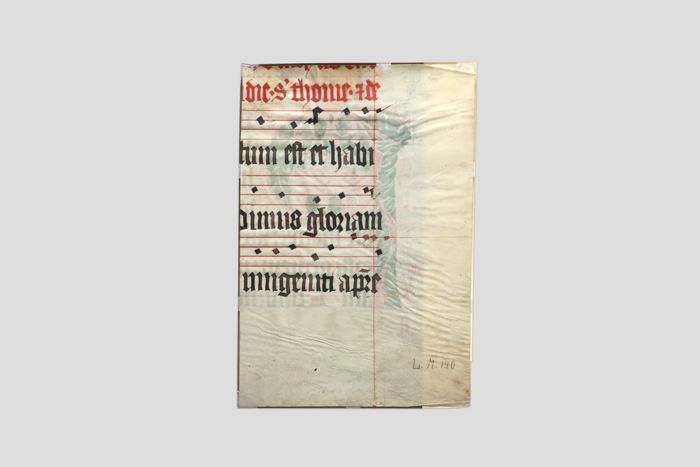 die · s' thome · ⁊ de
tum est et habi
dimus gloriam
nnigeniti a pr̄e
L. M. 140